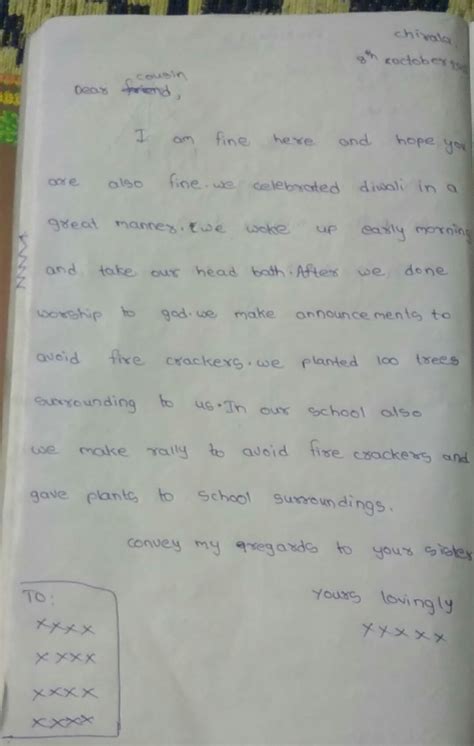 Chirala,
8th october
Dear friend, cousin
I am fine here and hope you
are also fine. we celebrated diwali in a
great manner. we woke up early morning
and take our head bath. After we done
worship to god. we make announcements to
avoid fire crackers. we planted 100 trees
surrounding to us. In our school also
we make rally to avoid fire crackers and
gave plants to school surroundings.
convey my regards to your sister
yours lovingly
xxxxx
TO:
xxxx
xxxx
xxxx
xxxx